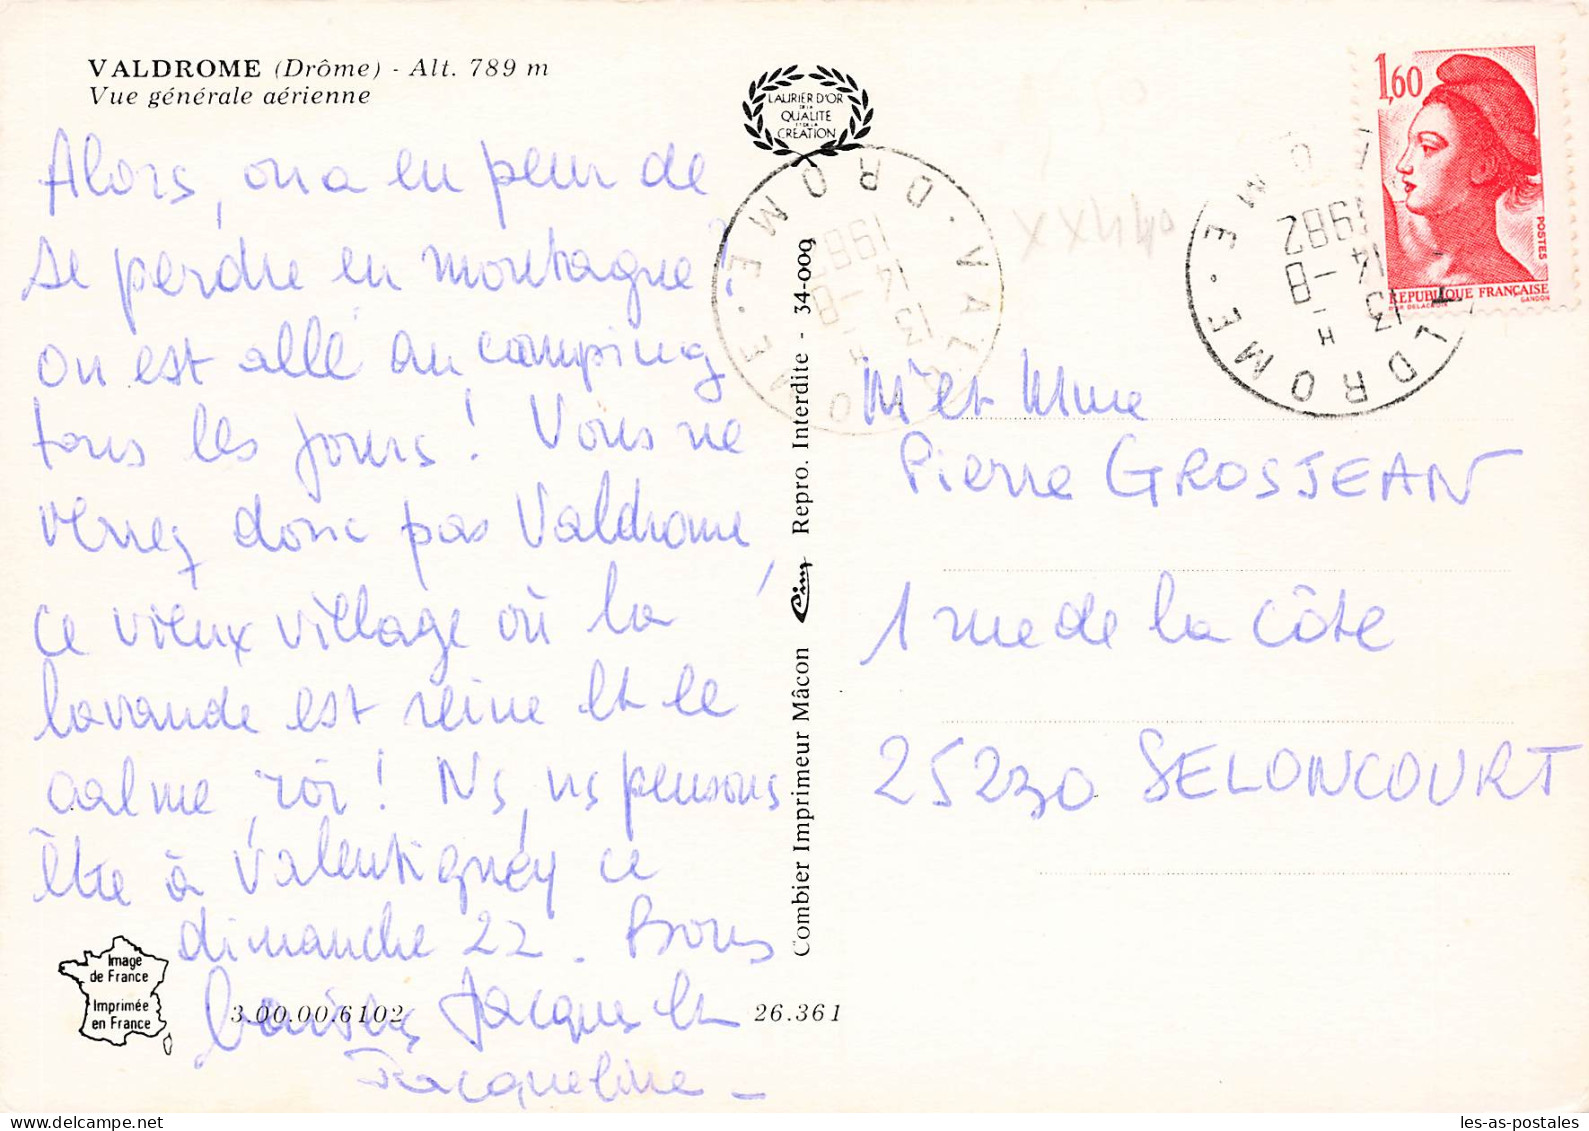 VALDROME (Drôme) - Alt. 789 m
Vue générale aérienne
Alors, on a eu peur de
se perdre en montagne?
On est allé au camping
tous les jours! Vous ne
verrez donc pas Valdrome,
ce vieux village où la
lavande est reine et le
calme, roi! Ns, ns pensons
être à Valentigney ce
dimanche 22. Bons
baisers Jacques et
Jacqueline -
Image
de France
Imprimée
en France
3.00.00.6102
26.361
LAURIER D'OR
DE LA
QUALITE
ET DE LA
CREATION
Combier Imprimeur Mâcon Cim Repro. Interdite - 34-009
VALDROME . DROME .
13 H
14 - 8
1982
VALDROME . DROME .
13 H
14 - 8
1982
1,60
POSTES
REPUBLIQUE FRANÇAISE
D'AP. DELACROIX GANDON
Mr et Mme
Pierre GROSJEAN
1 rue de la Côte
25230 SELONCOURT
les-as-postales